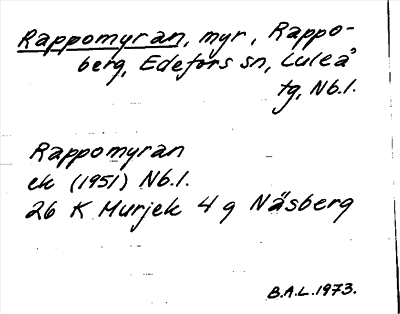 Rappomyran, myr, Rappo-
berg, Edefors sn, Luleå
tg, Nb.l.
Rappomyran
ek (1951) Nb.l.
26 K Murjek 4 g Näsberg
B.A.L. 1973.